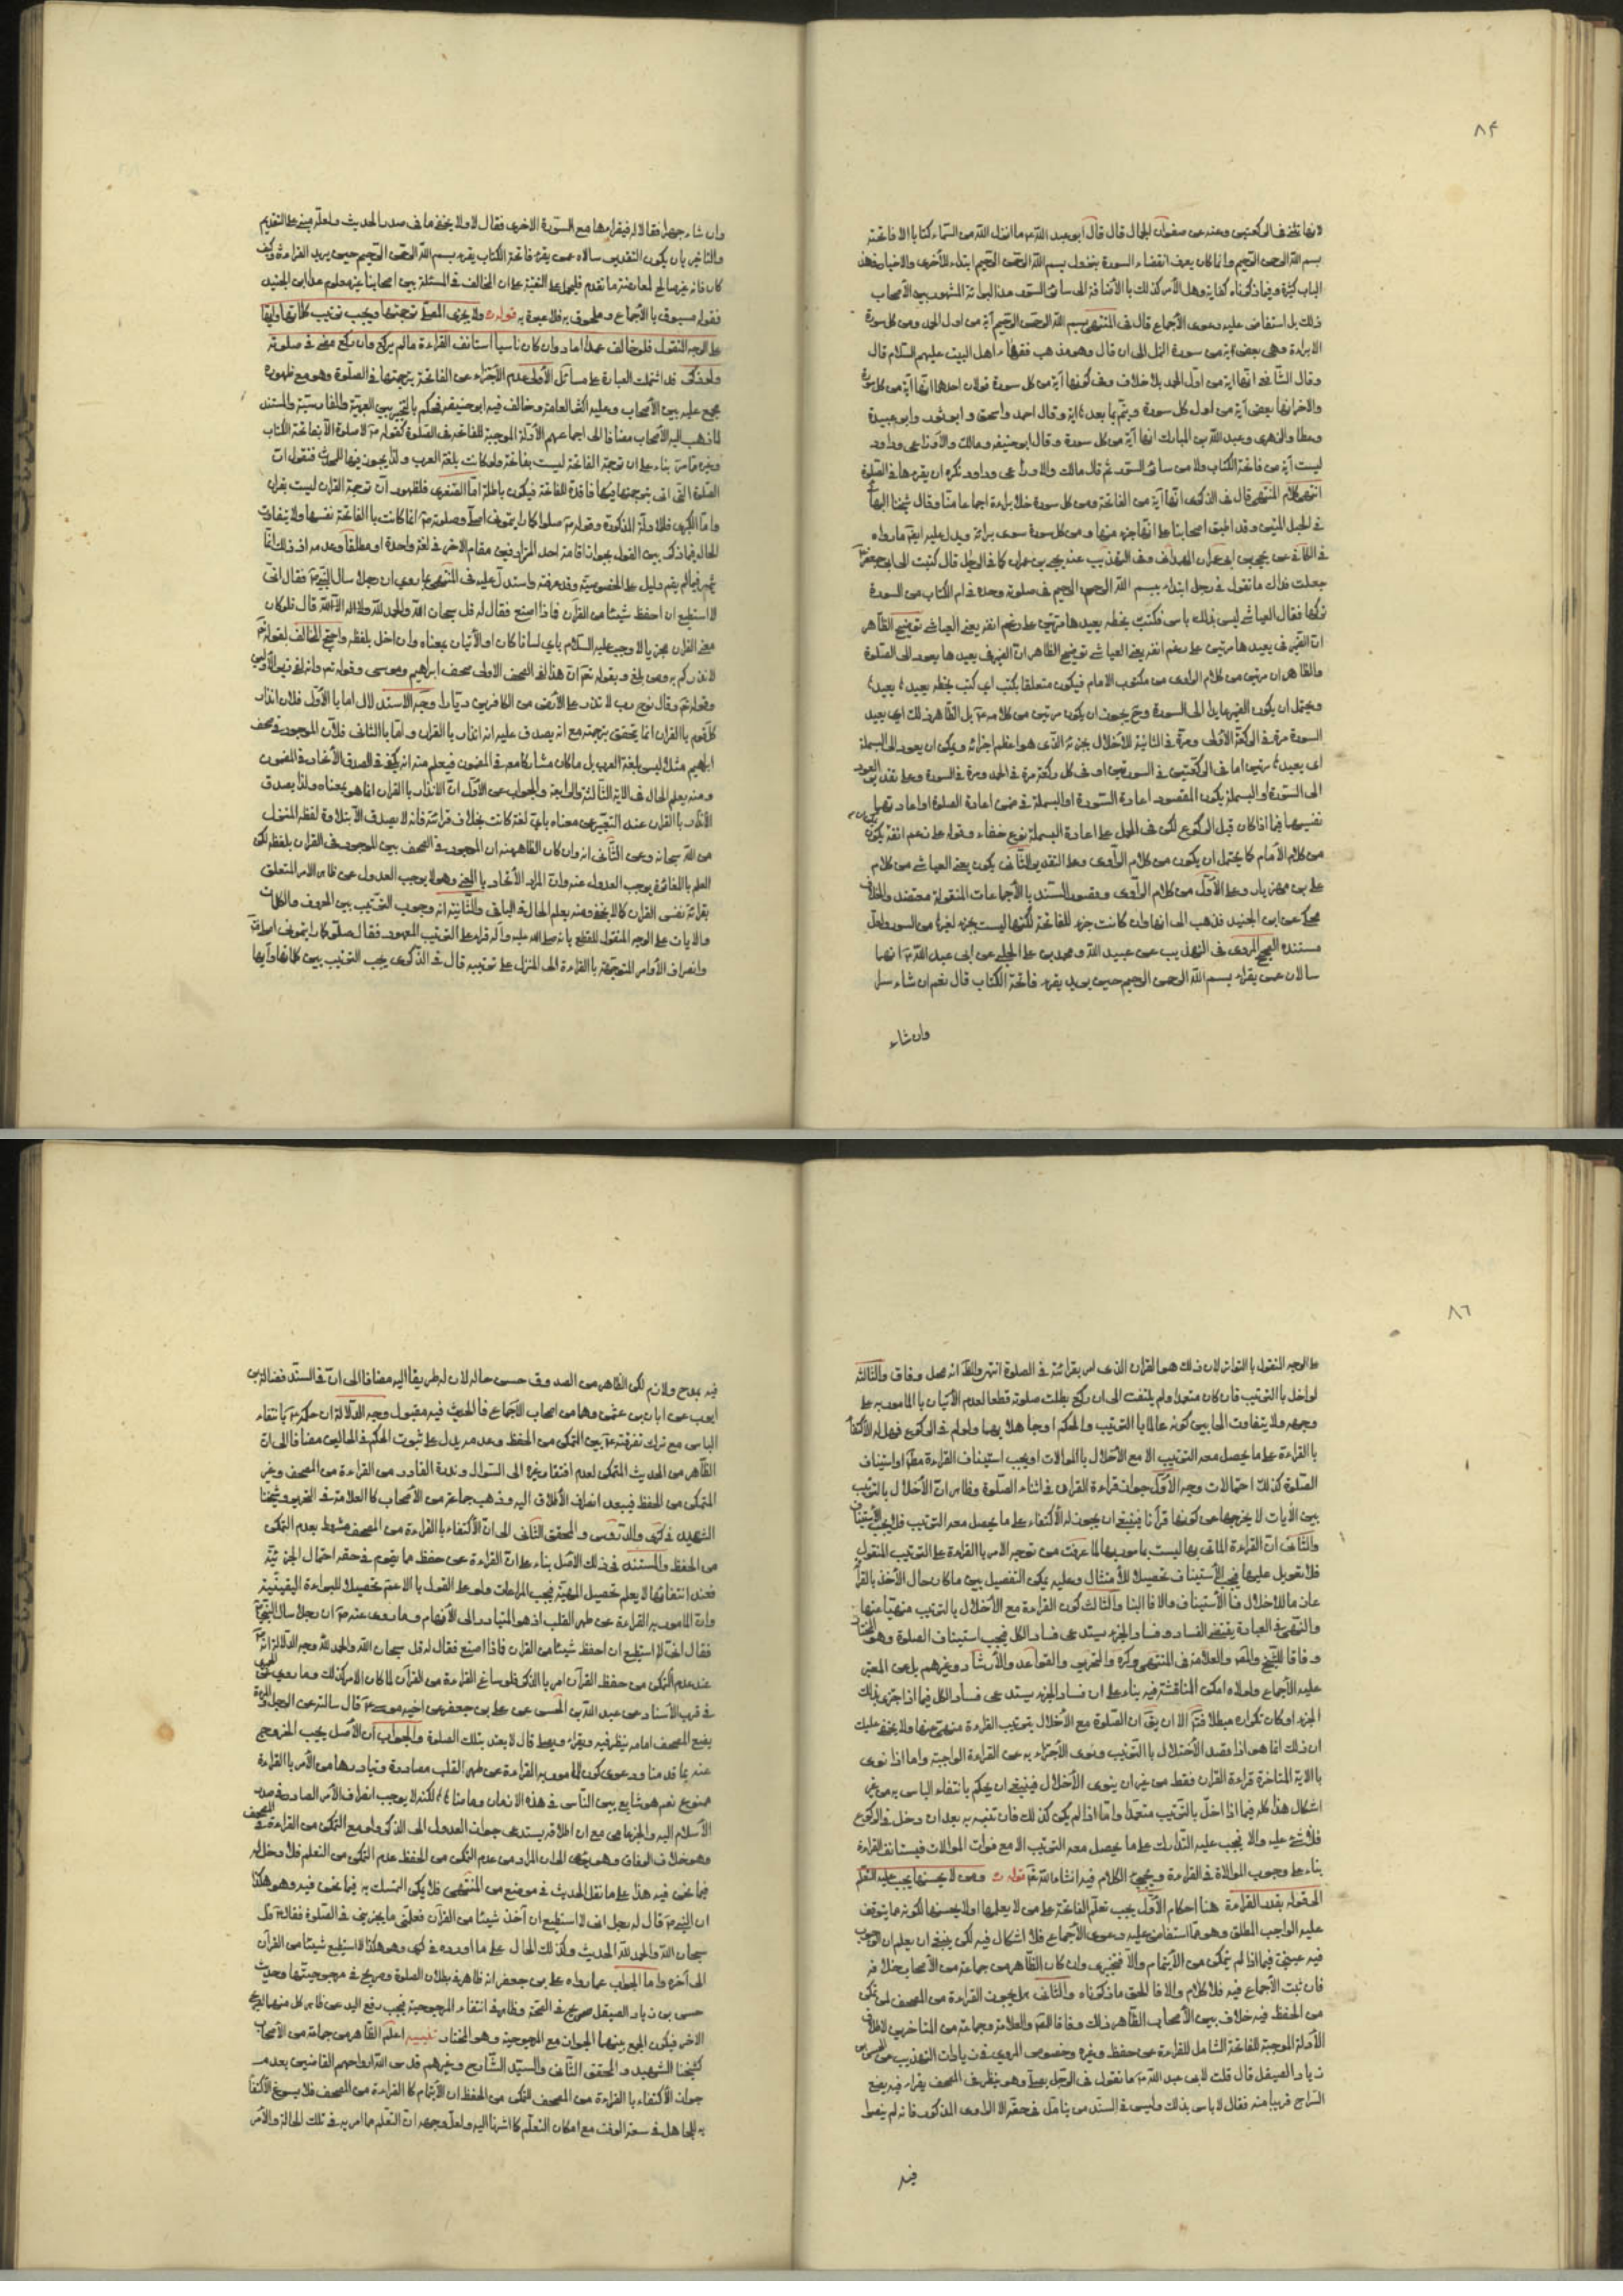 ٨۴
لانها تخفف الركعتين وعنه عن صفوان الجمال قال قال ابو عبد الله ما انزل الله من السماء كتابا الا فاتحته
بسم الله الرحمن الرحيم وانما كان يعرف انقضاء السورة بنزول بسم الله الرحمن الرحيم ابتداء للاخرى والاخبار فى هذا
الباب كثيرة وفيما ذكرناه كفاية وهل الأمر كذلك بالأضافة الى سائر السور عدا البرائة المشهور بين الأصحاب
ذلك بل استفاض عليه دعوى الأجماع قال فى المنتهى بسم الله الرحمن الرحيم آية من اول الحمد ومن كل سورة
الا براءة وهى بعض آية من سورة النمل الى ان قال وهو مذهب فقهاء اهل البيت عليهم السلام قال
وقال الشافعى انها اية من اول الحمد بلا خلاف وفى كونها آية من كل سورة قولان احدهما انها آية من كل سورة
والاخر انها بعض آية من اول كل سورة ويتم بما بعدها اية وقال احمد واسحق وابو ثور وابو عبيدة
وعطا والزهرى وعبد الله بن المبارك انها آية من كل سورة وقال ابو حنيفه ومالك والأوزاعى وداود
ليست آية من فاتحة الكتاب ولا من سائر السور ثم قال مالك والاوزاعى وداود تكره ان يقرءها فى الصلوة
انتهى كلام المنتهى قال فى الذكرى انها آية من الفاتحة ومن كل سورة خلا براءة اجماعا منا وقال شيخنا البهائى
فى الحبل المتين وقد اطبق اصحابنا على انها جزء منها ومن كل سورة سوى برائة ويدل عليه ايضا ما رواه
فى الكافى عن يحيى بن ابى عمران الهمدانى وفى التهذيب عنه يحيى بن عمران كما فى الوجل قال كتبت الى ابى جعفر
جعلت فداك ما تقول فى رجل ابتداء ببسم الله الرحمن الرحيم فى صلوته وحده فى ام الكتاب من السورة
تركها فقال العياشى ليس بذلك باس فكتب بخطه يعيدها مرتين على رغم انفه يعنى العياشى توضيح الظاهر
ان الضمير فى يعيدها يعود الى الصلوة
والظاهر ان مرتين من كلام الراوى من مكتوب الامام فيكون متعلقا بكتب اى كتب بخطه يعيدها يعيدها
ويحتمل ان يكون الضمير عايدا الى السورة وح يجوز ان يكون مرتين من كلامه بل الظاهر ذلك اى يعيد
السورة مرة فى الركعة الأولى ومرة فى الثانية للأخلال بجزئه الذى هو اعظم اجزائه ويمكن ان يعود الى البسملة
اى يعيدها مرتين اما فى الركعتين فى السورتين او فى كل ركعة مرة فى الحمد ومرة فى السورة وعلى تقدير العود
الى السورة او البسملة يكون المقصود اعادة السورة او البسملة فى ضمن اعادة الصلوة او اعادتهما
نفسهما فيما اذا كان قبل الركوع لكن فى الحمل على اعادة البسملة نوع خفاء وقوله على رغم انفه يمكن
من كلام الأمام كما يحتمل ان يكون من كلام الراوى وعلى التقدير الثانى يكون يعنى العياشى من كلام
على بن مهزيار وعلى الأول من كلام الراوى وقصور السند بالأجماعات المنقولة معتضد والخلاف
محكى عن ابن الجنيد فذهب الى انها وان كانت جزء للفاتحة لكنها ليست بجزء لغيرها من السور ولعل
مستنده الصحيح المروى فى التهذيب عن عبيد الله ومحمد بن على الحلبى عن ابى عبد الله انهما
سالاه عمن يقرء بسم الله الرحمن الرحيم حين يريد يقرء فاتحة الكتاب قال نعم ان شاء سرا
وان شاء
وان شاء جهرا فقالا له فيقراها مع السورة الاخرى فقال لا ولا يخفى ما فى صدر الحديث ولعله مبنى على التقديم
والتاخير بان يكون التقدير سالاه عمن يقرء فاتحة الكتاب يقرء بسم الله الرحمن الرحيم حين يريد القراءة وكيف
كان فانه غير صالح لمعارضة ما تقدم فليحمل على التقية على ان المخالف فى المسئلة بين اصحابنا غير معلوم عدا ابن الجنيد
فقوله مسبوق بالأجماع وملحوق به فلا عبرة به قوله ولا يجزى المصلى ترجمتها ويجب ترتيب كلماتها وايها
على الوجه المنقول فلو خالف عمدا اعاد وان كان ناسيا استانف القراءة ما لم يركع وان ركع مضى فى صلوته
ولو ذكر قد اشتملت العبارة على مسائل الأولى عدم الأجتزاء عن الفاتحة بترجمتها فى الصلوة وهو مع ظهوره
مجمع عليه بين الأصحاب وعليه اكثر العامة وخالف فيه ابو حنيفه فحكم بالتخيير بين العربية والفارسية والمستند
لما ذهب اليه الأصحاب مضافا الى اجماعهم الأدلة الموجبة للفاتحة فى الصلوة كقوله لا صلوة الا بفاتحة الكتاب
وغيره مما مر بناء على ان ترجمة الفاتحة ليست بفاتحة ولو كانت بلغة العرب ولذا يجوز مسها للمحدث فنقول ان
الصلوة التى اتى بترجمتها فيها فاقدة للفاتحة فيكون باطلة اما الصغرى فلظهور ان ترجمة القران ليست بقران
واما الكبرى فللادلة المذكورة وقوله صلوا كما رايتمونى اصلى وصلوته انما كانت بالفاتحة نفسها ولا يتفاوت
الحال فيما ذكر بين القول بجواز اقامة احد المرادفين مقام الاخر فى لغة واحدة او مطلقا وعدمه اذ ذلك انما
يثمر فيما لم يقم دليل على الخصوصية وقد عرفته واستدل عليه فى المنتهى بما روى ان رجلا سال النبى فقال انى
لا استطيع ان احفظ شيئا من القران فماذا اصنع فقال له قل سبحان الله والحمد لله ولا اله الا الله قال فلو كان
معنى القران مجزيا لاوجب عليه السلام باى لسان كان او الأتيان بمعناه وان اخل بلفظه واحتج المخالف بقوله
لانذركم به ومن بلغ وبقوله تعم ان هذا لفى الصحف الاولى صحف ابراهيم وموسى وقوله تعم وانه لفى زبر الأولين
وقوله تعم وقال نوح رب لا تذر على الأرض من الكافرين ديارا وجه الاستدلال اما بالأول فلان انذار
كل قوم بالقران انما يتحقق بترجمته مع انه يصدق عليه انه انذار بالقران واما بالثانى فلأن الموجود فى صحف
ابراهيم مثلا ليس بلغة العرب بل ما كان مشاركا معه فى المضمون فيعلم منه انه يكفى فى الصدق الأتحاد فى المضمون
ومنه يعلم الحال فى الاية الثالثة والرابعة والجواب عن الأول ان الانذار بالقران انما هو بمعناه ولذا يصدق
الأنذار بالقران عند التعبير عن معناه باى لغة كانت بخلاف قراءته فانه لا يصدق الا بتلاوة لفظه المنزل
من الله سبحانه وعن الثانى انه وان كان الظاهر منه ان الموجود فى الصحف بين الموجود فى القران بلفظه لكن
العلم بالمغائرة يوجب العدول عنه وان المراد الأتحاد بالمعنى وهو لا يوجب العدول عن ظاهر الامر المتعلق
بقراءة نفس القران كما لا يخفى ومنه يعلم الحال فى الباقى والثانية انه وجوب الترتيب بين الحروف والكلمات
والايات على الوجه المنقول للقطع بانه صلى الله عليه واله قراه على الترتيب المعهود فقال صلوا كما رايتمونى اصلى
وانصراف الأوامر المتوجهة بالقراءة الى المنزل على ترتيبه قال فى الذكرى يجب الترتيب بين كلماتها وآيها
٨٦
على الوجه المنقول بالتواتر لان ذلك هو القران الذى امر بقرائته فى الصلوة انتهى والظ انه محل وفاق والثالثة
لو اخل بالترتيب فان كان متعمدا ولم يلتفت الى ان ركع بطلت صلوته قطعا لعدم الأتيان بالمامور به على
وجهه ولا يتفاوت الحال بين كونه عالما بالترتيب والحكم او جاهلا بهما ولو لم فى الركوع فهل له الأكتفاء
بالقراءة على ما يحصل معه الترتيب الا مع الأخلال بالموالات او يجب استيناف القراءة مطلقا او استيناف
الصلوة كذلك احتمالات وجه الأول جواز قراءة القران فى اثناء الصلوة وظاهر ان الأخلال بالترتيب
بين الأيات لا يخرجها عن كونها قرآنا فينبغى ان يجوز له الأكتفاء على ما يحصل معه الترتيب فلا يجب الأستيناف
والثانى ان القراءة الماتى بها ليست بمامور بها لما عرفت من توجه الامر بالقراءة على الترتيب المنقول
فلا تعويل عليها فيجب الأستيناف تحصيلا للأمتثال وعليه يمكن التفصيل بين ما كان حال الأخذ بالقراءة
عازما للاخلال فالأستيناف والا فالبنا والثالث كون القراءة مع الأخلال بالترتيب منهيا عنها
والنهى فى العبادة يقتضى الفساد وفساد الجزء يستدعى فساد الكل فيجب استيناف الصلوة وهو المختار
وفاقا للشيخ والمحقق والعلامة فى المنتهى وكره والتحرير والقواعد والأرشاد وغيرهم بل عن المعتبر
عليه الأجماع ولولاه امكن المناقشة فيه بناء على ان فساد الجزء يستدعى فساد الكل فيما اذا اجتزى بذلك
الجزء او كان تكراره مبطلا فتم الا ان يق ان الصلوة مع الأخلال بترتيب القراءة منهى عنها ولا يخفى عليك
ان ذلك انما هو اذا قصد الأختلال بالترتيب ونوى الأجتزاء به عن القراءة الواجبة واما اذا نوى
بالاية المتاخرة قراءة القران فقط من غير ان ينوى الأخلال فينبغى ان يحكم بانتفاء الباس به من غير
اشكال هذا كله فيما اذا اخل بالترتيب متعمدا واما اذا لم يكن كذلك فان تنبه به بعد ان دخل فى الركوع
فلا شئ عليه والا يجب عليه التدارك على ما يحصل معه الترتيب الا مع فوات الموالات فيستانف القراءة
بناء على وجوب الموالاة فى القراءة ويجئ الكلام فيه انشاء الله تعالى قوله ومن لا يحسنها يجب عليه التعلم
المقوله بقدر القراءة هنا احكام الأول يجب تعلم الفاتحة على من لا يعلمها او لا يحسنها لكونه مما يتوقف
عليه الواجب المطلق وهو مما استفاض عليه دعوى الأجماع فلا اشكال فيه لكن ينبغى ان يعلم ان الوجوب
فيه عينى فيما اذا لم يتمكن من الأيتمام والا فتخييرى وان كان الظاهر من جماعة من الأصحاب خلافه
فان ثبت الأجماع فيه فلا كلام والا فالحق ما ذكرناه والثانى هل يجوز القراءة من المصحف لمن تمكن
من الحفظ فيه خلاف بين الأصحاب الظاهر ذلك وفاقا للشيخ والعلامة وجماعة من المتاخرين لاطلاق
الأدلة الموجبة للفاتحة الشامل للقراءة عن حفظ وغيره وخصوص المروى فى زيادات التهذيب عن الحسن بن
زياد الصيقل قال قلت لابى عبد الله ما تقول فى الرجل يصلى وهو ينظر فى المصحف يقراء فيه يضع
السراج قريبا منه فقال لا باس بذلك وليس فى السند من يتامل فى حقه الا الراوى المذكور فانه لم ينصوا
فيه
فيه بمدح ولا ذم لكن الظاهر من الصدوق حسن حاله لان له طريقا اليه مضافا الى ان فى السند فضالة بن
ايوب عن ابان بن عثمن وهما من اصحاب الأجماع فالحديث فيه مقبول وجه الدلالة ان حكمه بانتفاء
الباس مع ترك تفرقته بين التمكن من الحفظ وعدمه يدل على ثبوت الحكم فى الحالين مضافا الى ان
الظاهر من الحديث المتمكن لعدم افتقار غيره الى السئوال وندرة القادر من القراءة من المصحف وغير
المتمكن من الحفظ فيبعد انصراف الأطلاق اليه وذهب جماعة من الأصحاب كالعلامة فى التحرير وشيخنا
الشهيد فى كرى والدروس والمحقق الثانى الى ان الأكتفاء بالقراءة من المصحف مشروط بعدم التمكن
من الحفظ والمستند فى ذلك الأصل بناء على ان القراءة عن حفظ مما يقوم فى حقه احتمال الجزئية
فعند انتفائها لا يعلم تحصيل المهية فيجب المراعات ولو على القول بالاعم تحصيلا للبراءة اليقينية
وان المامور به القراءة عن ظهر القلب اذ هو المتبادر الى الأفهام وما روى عنه ان رجلا سال النبى
فقال انى لا استطيع ان احفظ شيئا من القران فماذا اصنع فقال له قل سبحان الله والحمد لله وجه الدلالة انه
عند عدم التمكن من حفظ القرآن امر بالذكر فلو ساغ القراءة من القرآن لما كان الامر كذلك وما روى الحميرى
فى قرب الأسناد عن عبد الله بن الحسن عن على بن جعفر عن اخيه موسى قال سالته عن الرجل والمراة
يضع المصحف امامه ينظر فيه ويقراء ويصلى قال لا يعتد بتلك الصلوة والجواب ان الأصل يجب الخروج
عنه بما قدمنا ودعوى كون المامور به القراءة عن ظهر القلب مصادرة وتبادرها من الأمر بالقراءة
ممنوع نعم هو شايع بين الناس فى هذه الازمان ومامنا لكنه لا يوجب انصراف الأمر الصادر فى صدر
الأسلام اليه والجزءا من مع ان اطلاقه يستدعى جواز العدول الى الذكر ولو مع التمكن من القراءة فى المصحف
وهو خلاف الوفاق وهو يؤمى الى ان المراد من عدم التمكن من الحفظ عدم التمكن من التعلم فلا دخل له
فيما نحن فيه هذا على ما نقل الحديث فى موضع من المنتهى فلا يمكن التمسك به فيما نحن فيه وهو هكذا
ان النبى قال له رجل انى لا استطيع ان آخذ شيئا من القرآن فعلمنى ما يجزينى فى الصلوة فقال قل
سبحان الله والحمد لله الحديث وكذلك الحال على ما اورده فى كرى وهو هكذا لا استطيع شيئا من القران
الى آخره واما الجواب عما رواه على بن جعفر انه ظاهر فى بطلان الصلوة وصريح فى مرجوحيتها وحديث
حسن بن زياد الصيقل صريح فى الصحة وظاهر فى انتفاء المرجوحية فيجب رفع اليد عن ظاهر كل منهما بصريح
الاخر فيكون الجمع بينهما الجواز مع المرجوحية وهو المختار تنبيه اعلم الظاهر من جماعة من الأصحاب
كشيخنا الشهيد والمحقق الثانى والسيد الشارح وغيرهم قدس الله ارواحهم القاضين بعدم
جواز الأكتفاء بالقراءة من المصحف للتمكن من الحفظ ان الأيتمام كالقراءة من المصحف فلا يسوغ الأكتفا
به للجاهل فى سعة الوقت مع امكان التعلم كما اشرنا اليه ولعل وجهه ان التعلم مما امر به فى تلك الحالة والأمر